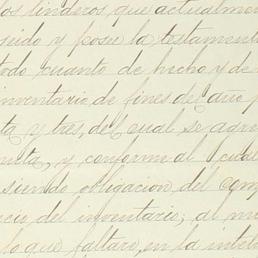 los linderos que actualmen
seido y posee la testament
todo cuanto de hecho y de
inventario de fines del año p
ta y tres, del cual se agre
nuta, y conforme al
siendo obligacion del comp
cio del inventario, al m
lo que faltare, en la inteli